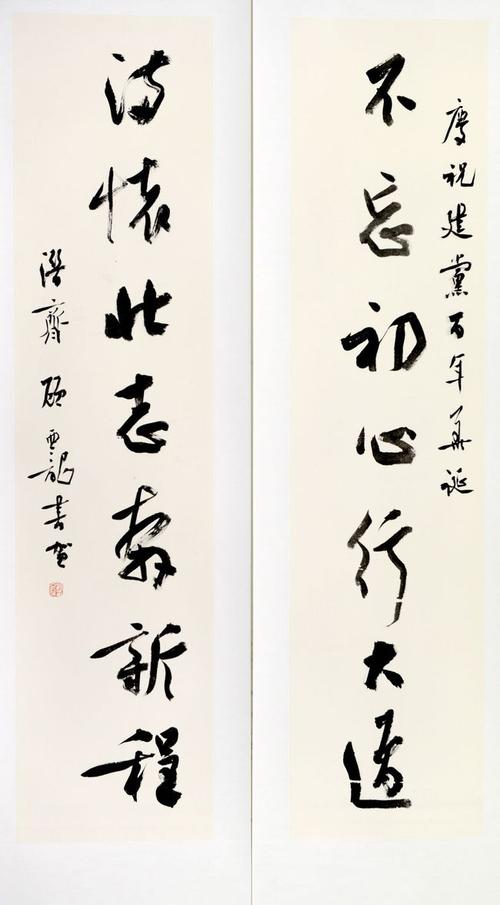 慶祝建黨百年華誕
不忘初心行大道
滿懷壯志奔新程
書賀